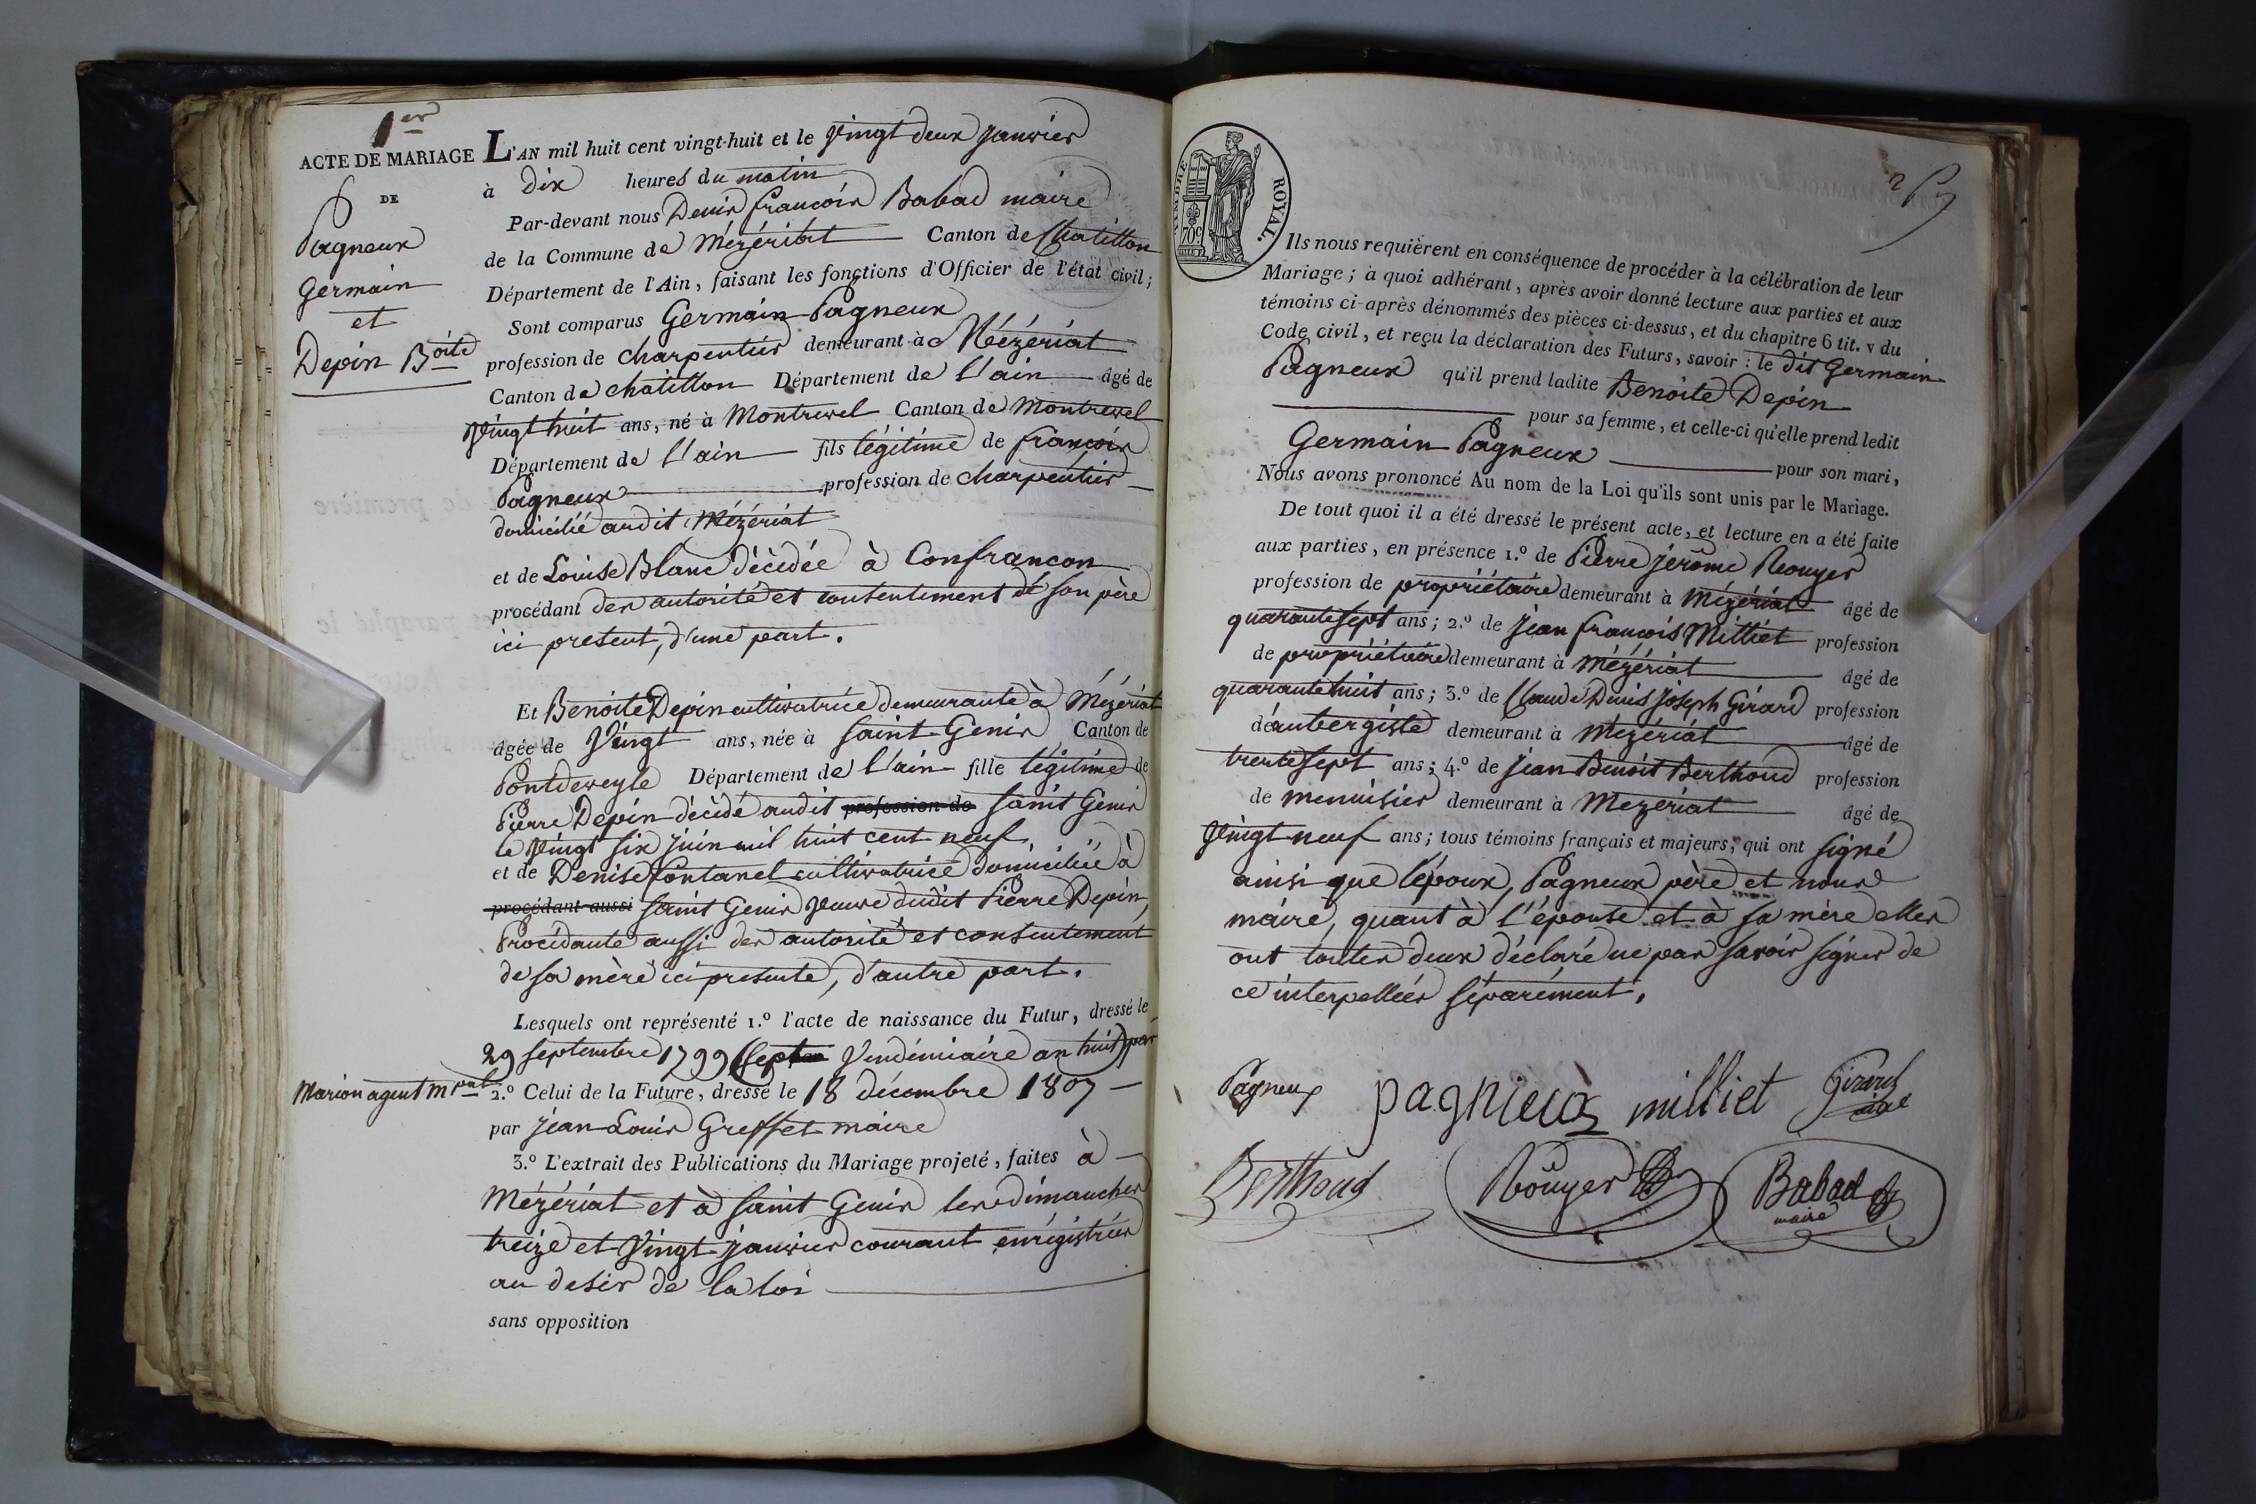 1er
ACTE DE MARIAGE
DE
Pagneux
Germain
et
Depin Boite
L'AN mil huit cent vingt-huit et le vingt deux janvier
à dix heures du matin
Par-devant nous Denis françois Babad maire
de la Commune de Mézériat Canton de Chatillon
Département de l'Ain, faisant les fonctions d'Officier de l'état civil;
Sont comparus Germain Pagneux
profession de charpentier demeurant à Mézériat
Canton de chatillon Département de l'ain âgé de
vingt huit ans, né à Montrevel Canton de Montrevel
Département de l'ain fils légitime de françois
Pagneux profession de charpentier
domicilié audit Mézériat
et de Louise Blanc décédée à Confrançon
procédant des autorité et consentement de son père
ici present, d'une part.
Et Benoite Depin cultivatrice demeurante à Mézériat
âgée de vingt ans, née à saint Genis Canton de
Pontdeveyle Département de l'ain fille légitime de
Pierre Depin décédé audit profession de saint Genis
le vingt six juin mil huit cent neuf
et de Denise Contanel cultivatrice domiciliée à
procédant aussi saint Genis veuve dudit Pierre Depin,
Procédante aussi des autorité et consentement
de sa mère ici presente, d'autre part.
Lesquels ont représenté 1.° l'acte de naissance du Futur, dressé le
29 septembre 1799 (sept vendémiaire an huit) par
Marion agent mpal 2.° Celui de la Future, dressé le 18 décembre 1807
par jean Louis Greffet maire
3.° L'extrait des Publications du Mariage projeté, faites à
Mézériat et à saint Genis les dimanches
treize et vingt janvier courant enrégistrées
au desir de la loi
sans opposition
TIMBRE ROYAL.
70c
2
Ils nous requièrent en conséquence de procéder à la célébration de leur
Mariage; à quoi adhérant, après avoir donné lecture aux parties et aux
témoins ci-après dénommés des pièces ci-dessus, et du chapitre 6 tit. v du
Code civil, et reçu la déclaration des Futurs, savoir: le dit Germain
Pagneux qu'il prend ladite Benoite Depin
pour sa femme, et celle-ci qu'elle prend ledit
Germain Pagneux pour son mari,
Nous avons prononcé Au nom de la Loi qu'ils sont unis par le Mariage.
De tout quoi il a été dressé le présent acte, et lecture en a été faite
aux parties, en présence 1.° de Pierre jérôme Rouyer
profession de propriétaire demeurant à Mézériat âgé de
quarante sept ans; 2.° de jean françois Milliet profession
de propriétaire demeurant à Mézériat âgé de
quarante huit ans; 3.° de Claude Denis joseph Girard profession
de aubergiste demeurant à Mézériat âgé de
trente sept ans; 4.° de jean Benoit Berthoud profession
de menuisier demeurant à Mezériat âgé de
vingt neuf ans; tous témoins français et majeurs, qui ont signé
ainsi que l'époux, Pagneux père et nous
maire, quant à l'épouse et à sa mère elles
ont toutes deux déclaré ne pas savoir signer de
ce interpellées séparément.
Pagneux pagnieux milliet Girard
Berthoud Rouyer Babad
maire